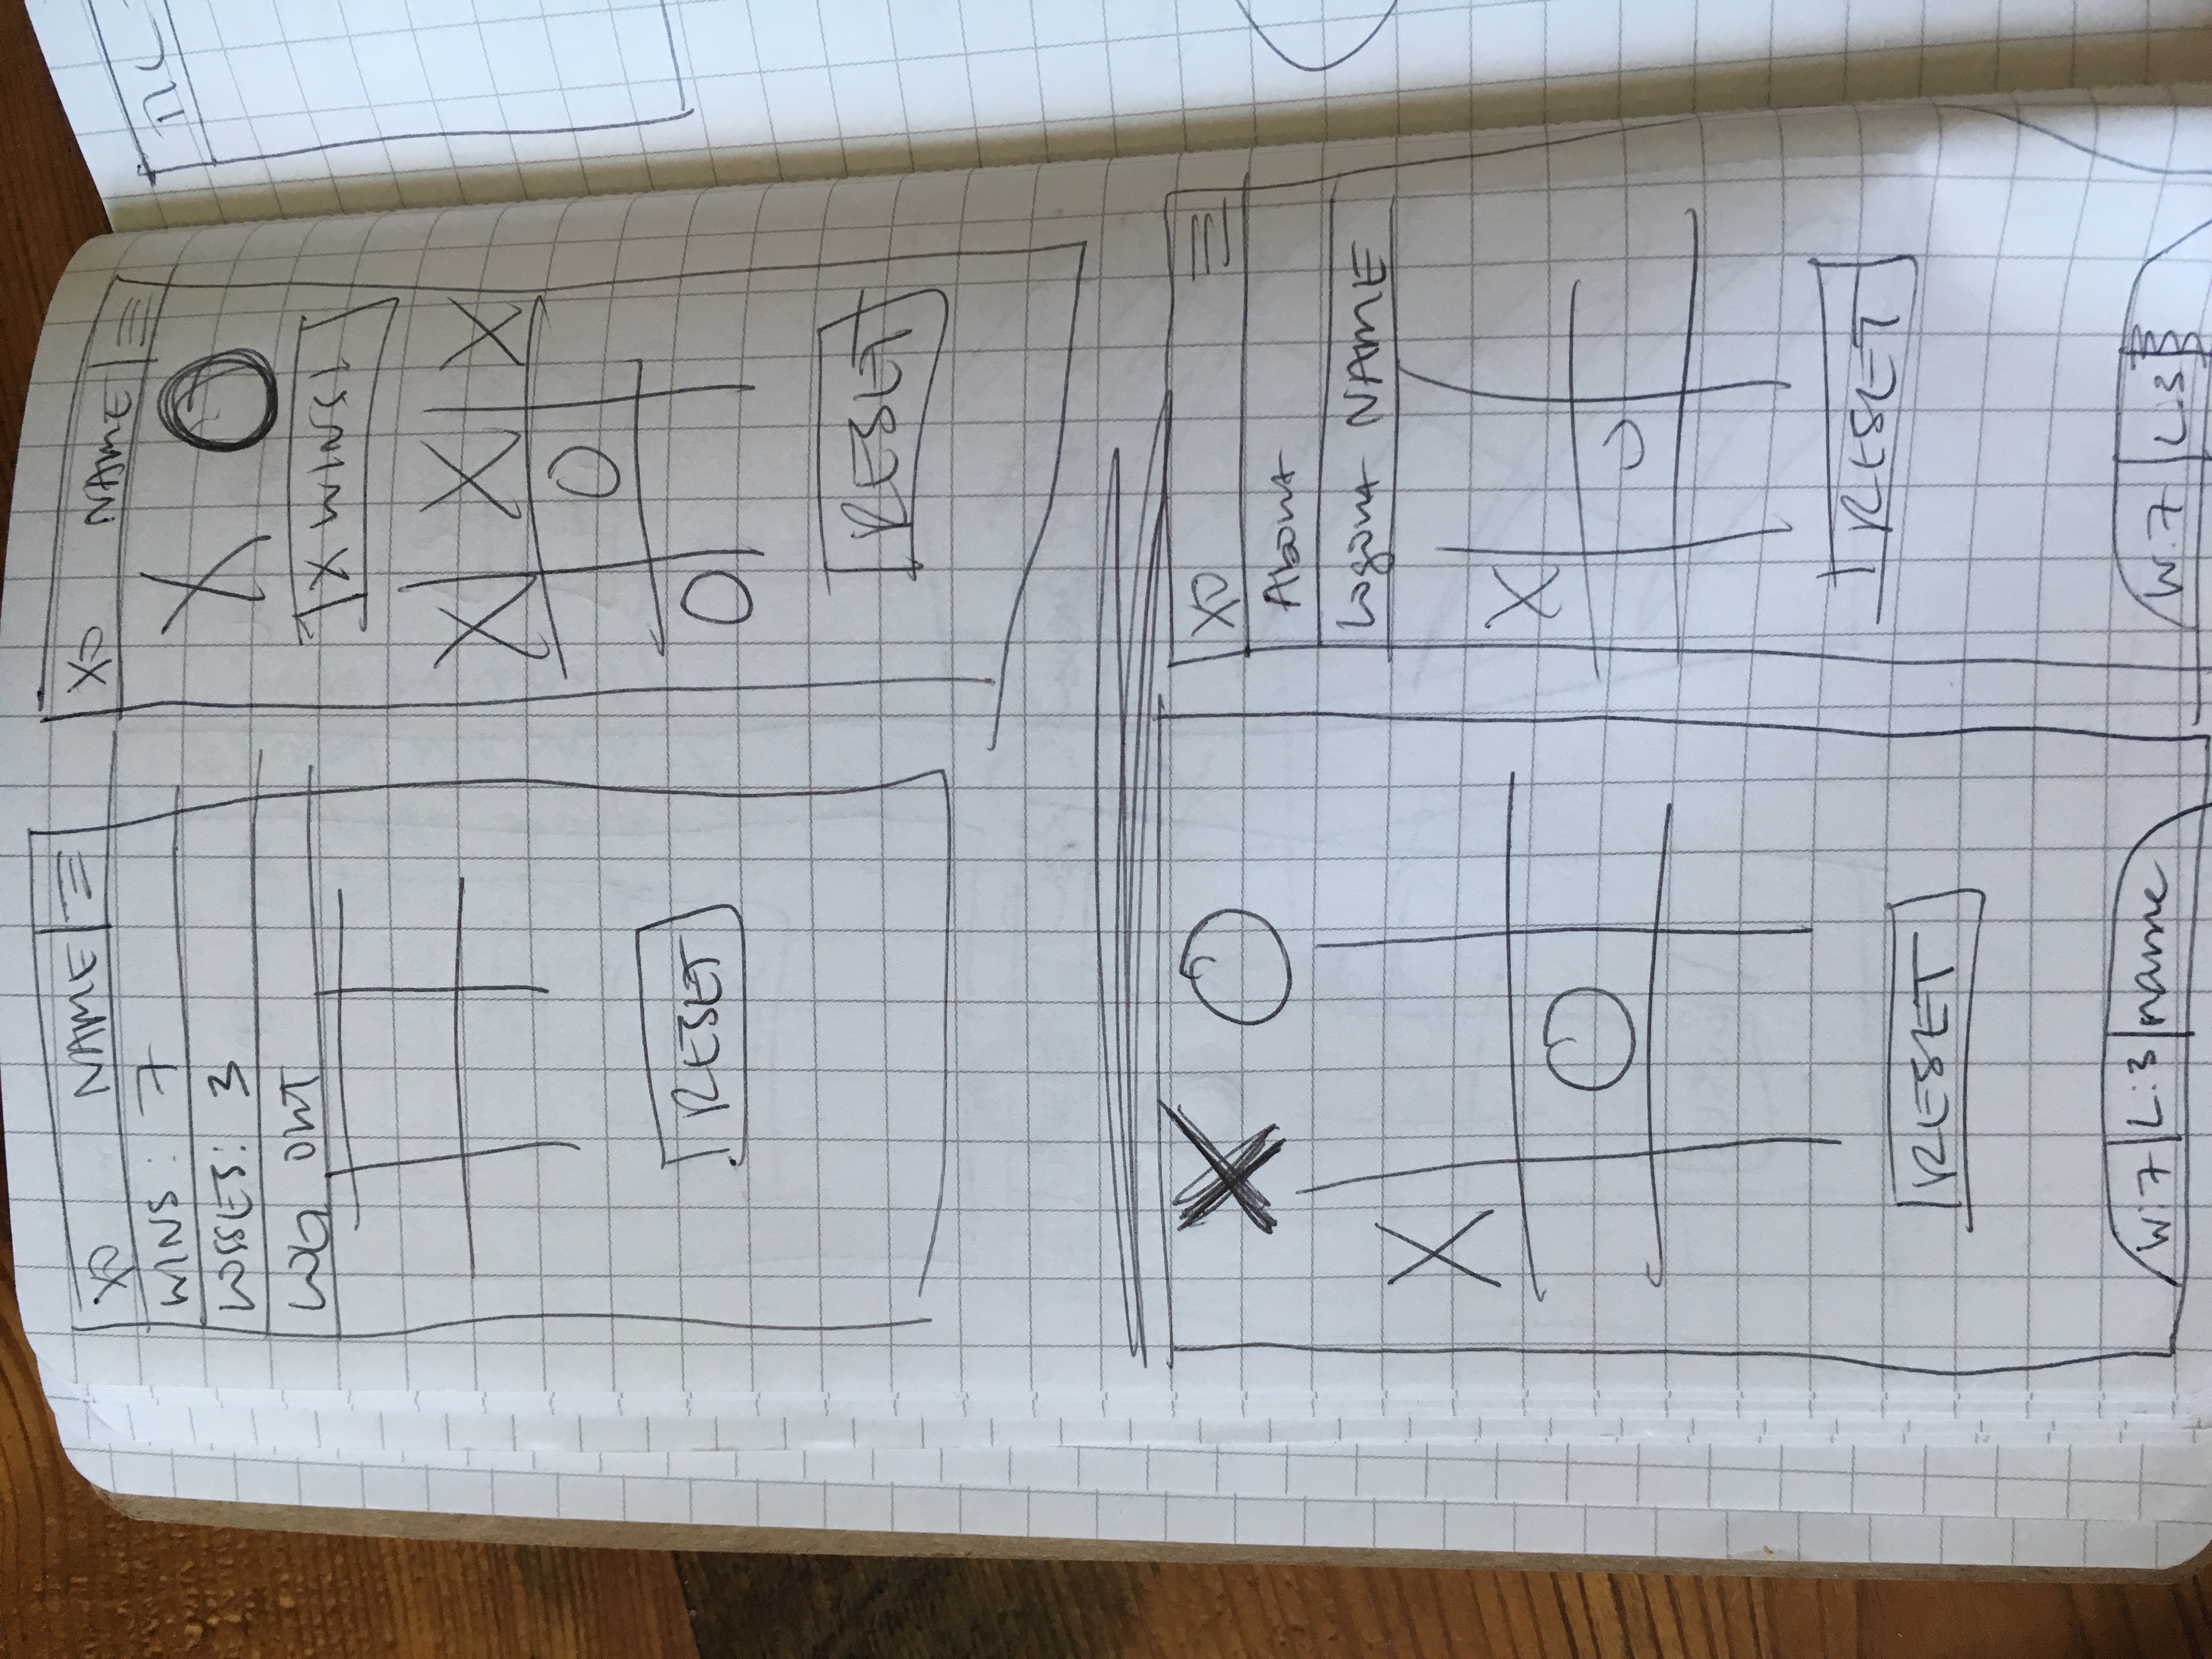 XO NAME
WINS: 7
LOSSES: 3
LOG OUT
RESET
XO NAME
X O
X WINS!
X X X
O
O
RESET
X O
X
O
RESET
W:7 L:3 name
XO
About
Logout NAME
X
O
RESET
W:7 L:3